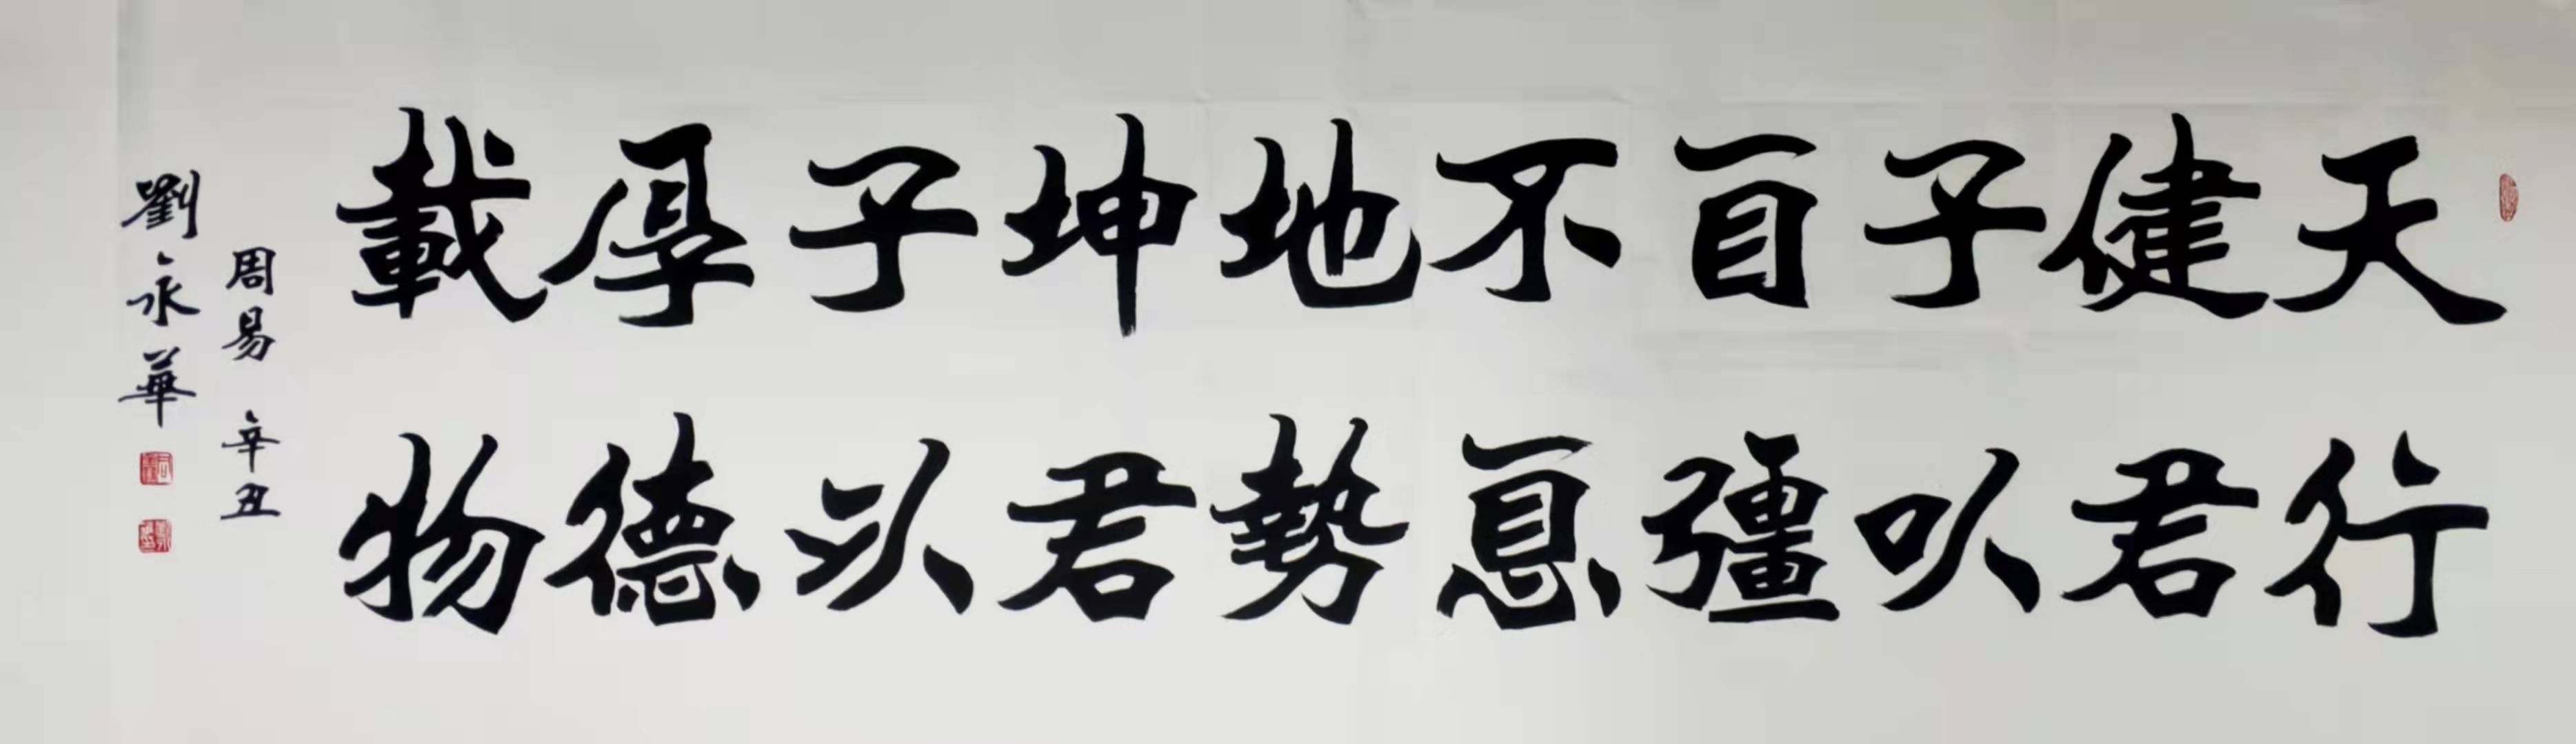 天行
健君
子以
自彊
不息
地勢
坤君
子以
厚德
載物
周易 辛丑
劉永華